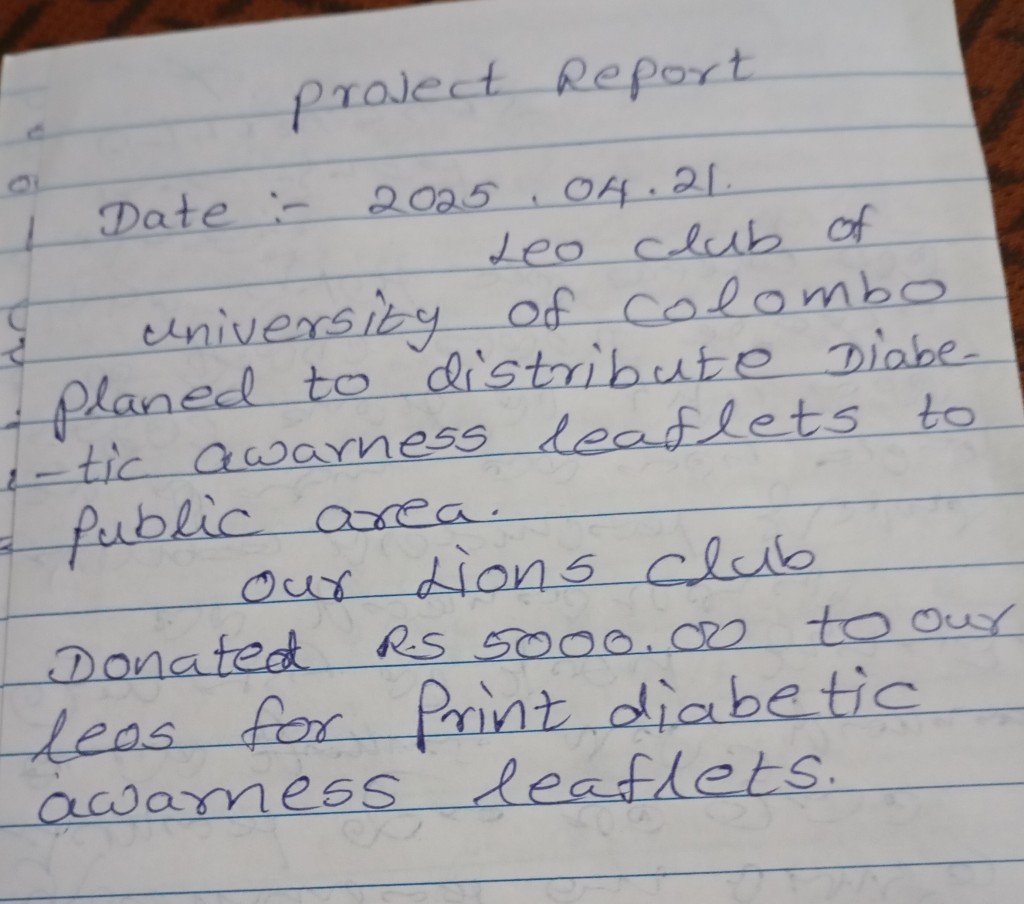 Project Report
Date :- 2025 . 04 . 21.
Leo club of
university of colombo
planed to distribute Diabe-
-tic awarness leaflets to
public area.
our Lions club
Donated Rs 5000.00 to our
leos for Print diabetic
awarness leaflets.